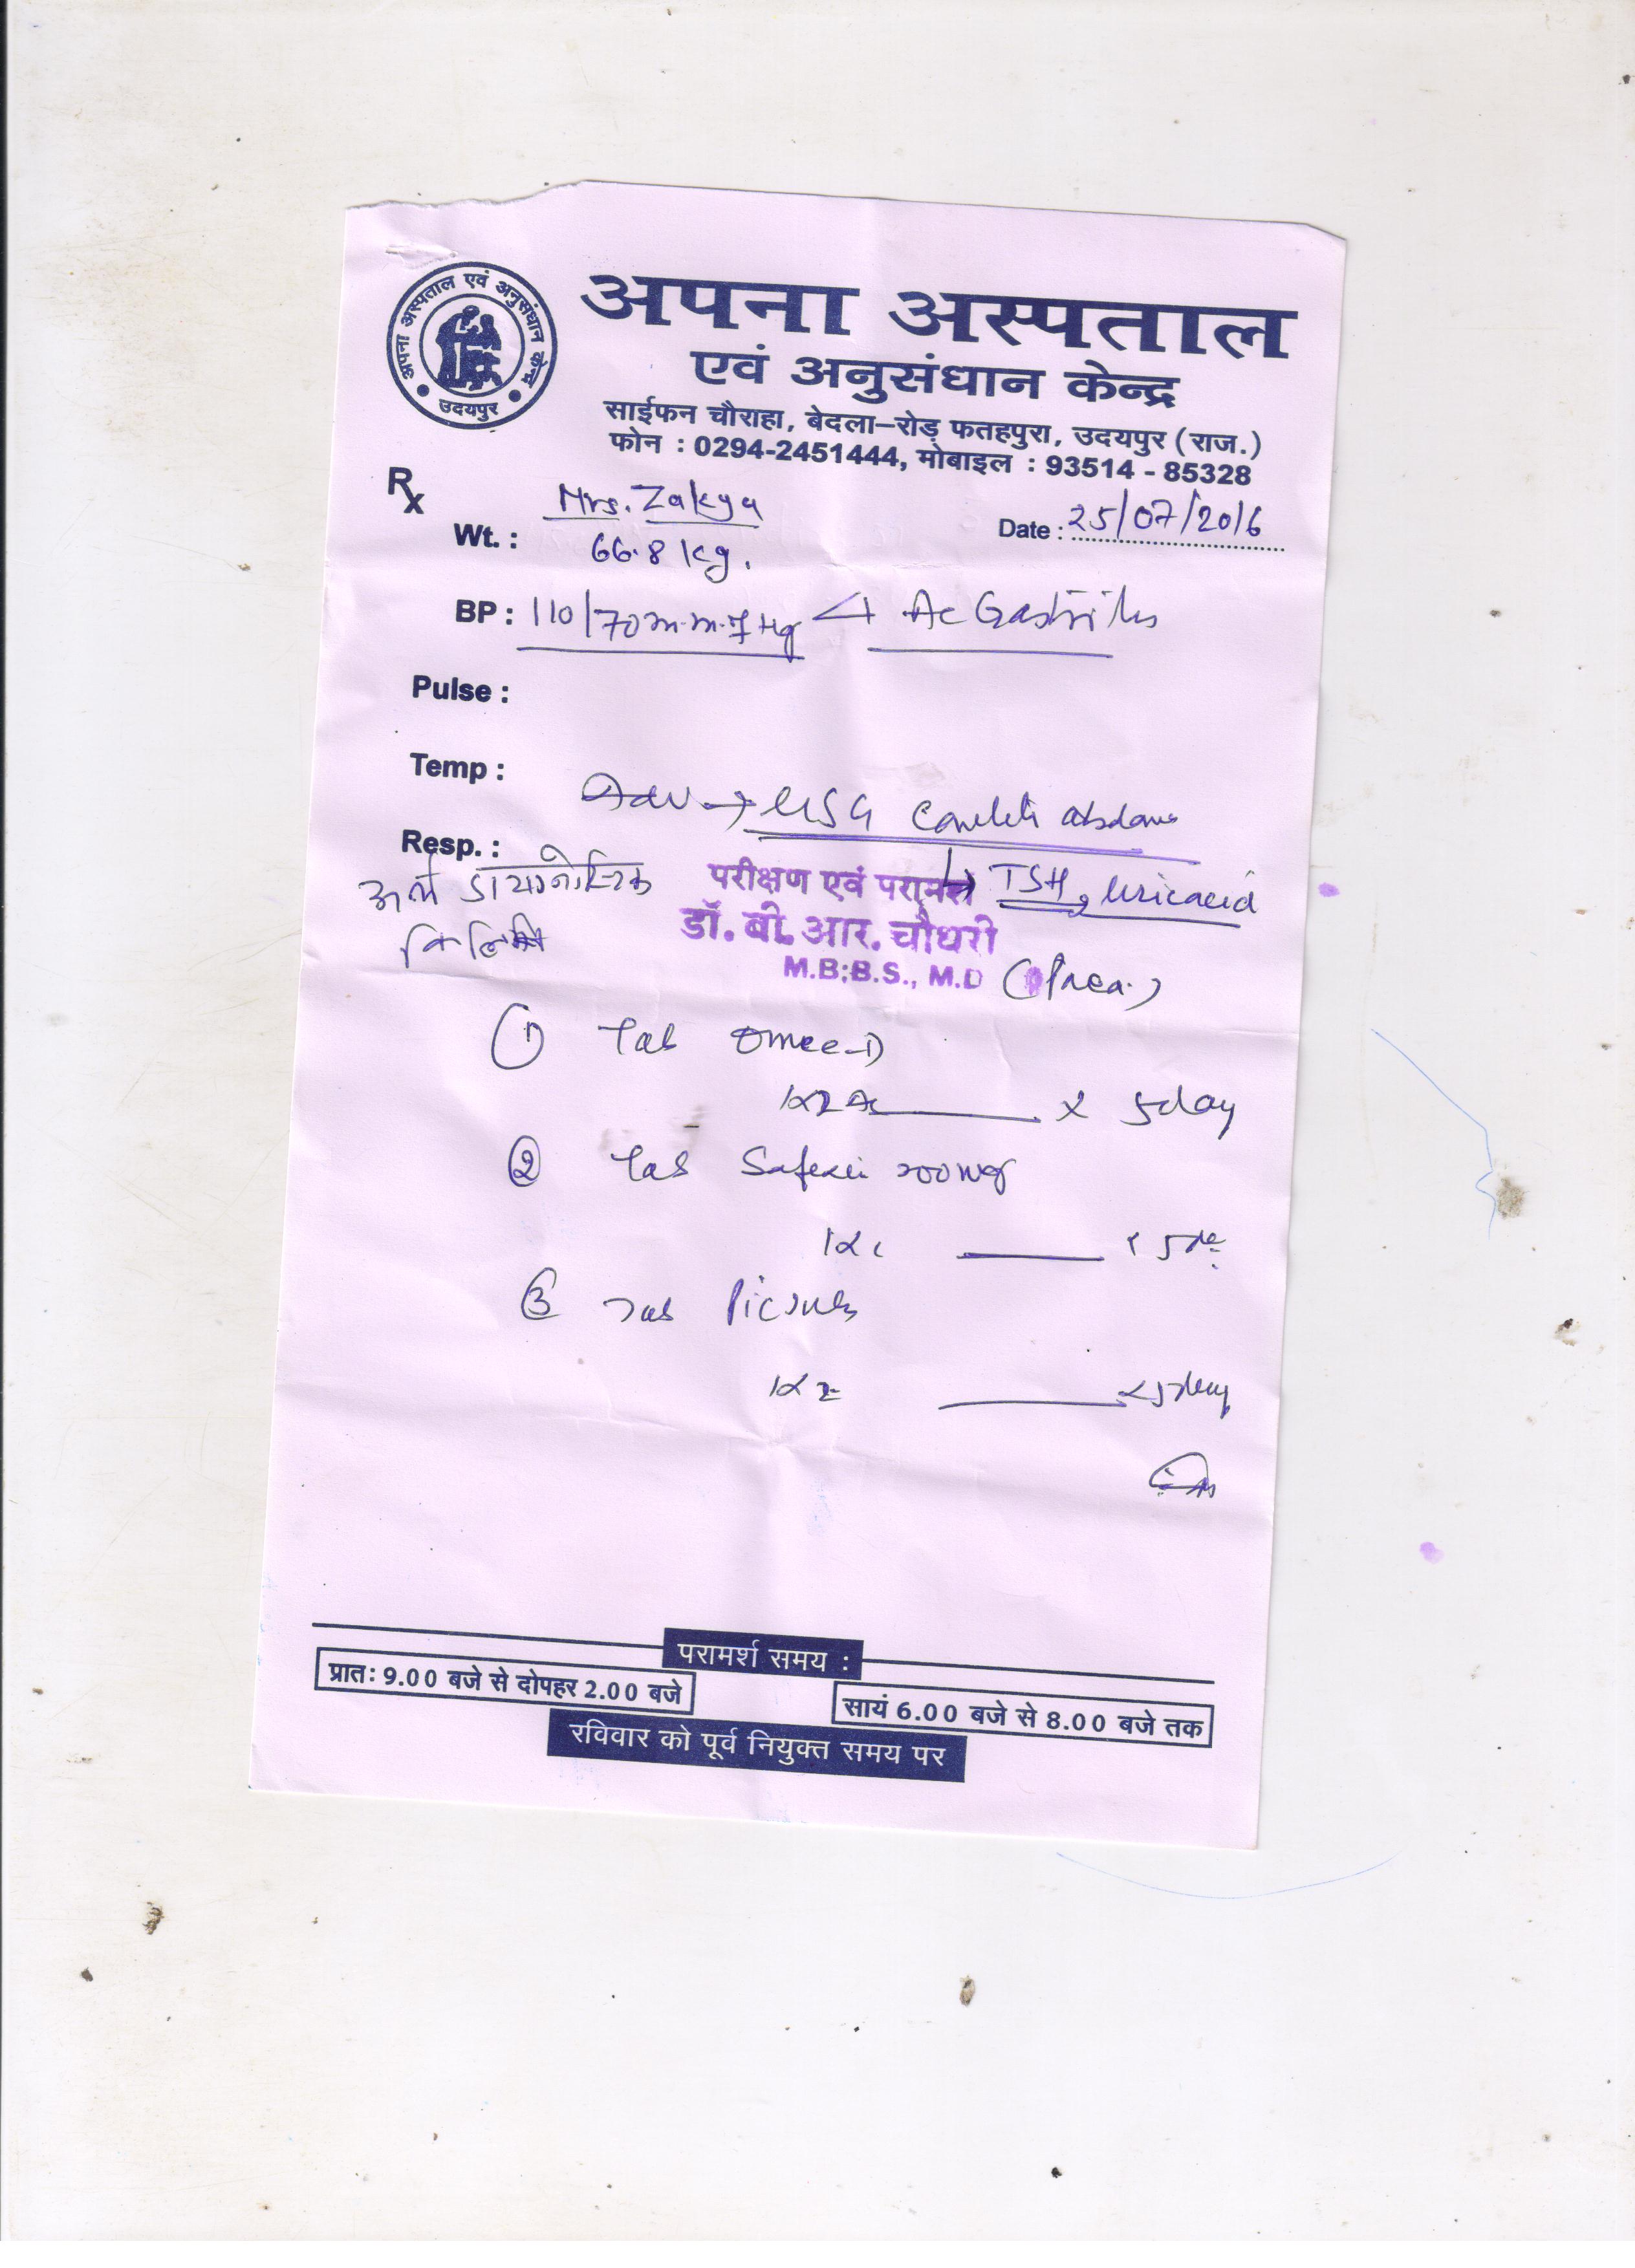 अपना अस्पताल एवं अनुसंधान केन्द्र
उदयपुर
अपना अस्पताल
एवं अनुसंधान केन्द्र
साईफन चौराहा, बेदला-रोड़ फतहपुरा, उदयपुर (राज.)
फोन : 0294-2451444, मोबाइल : 93514 - 85328
Rx
Mrs. Zakya
Date : 25/07/2016
Wt. : 66.8 kg.
BP : 110/70 m.m.of Hg Ac Gastritis
Pulse :
Temp :
Adv → USG abdomen
Resp. :
→ TSH, Uric acid
डायग्नोस्टिक
परीक्षण एवं परामर्श
डॉ. बी. आर. चौधरी
M.B.B.S., M.D
① Tab Omee-D
1x2 Ac x 5 day
② Tab 200 mg
1x1 x 5
③ Tab
1x2 x 5 day
परामर्श समय :
प्रातः 9.00 बजे से दोपहर 2.00 बजे
सायं 6.00 बजे से 8.00 बजे तक
रविवार को पूर्व नियुक्त समय पर